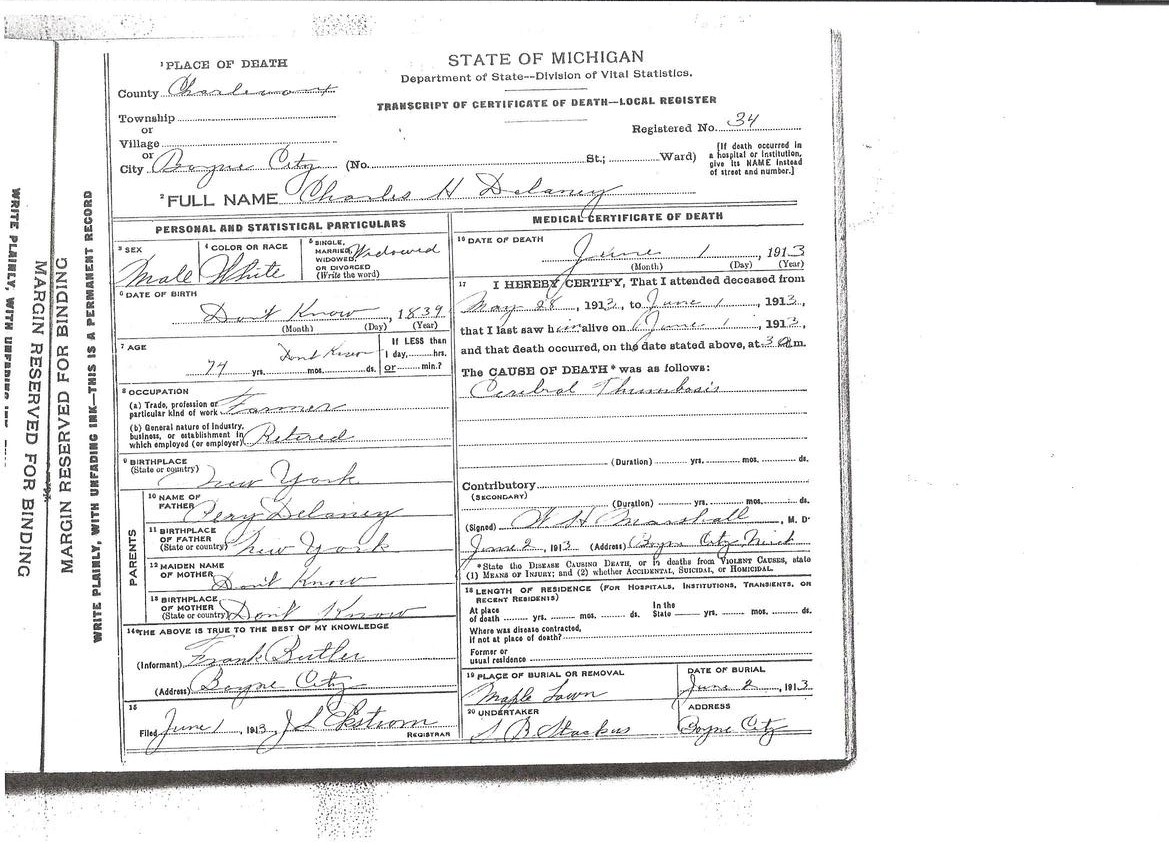 STATE OF MICHIGAN
Department of State--Division of Vital Statistics.
TRANSCRIPT OF CERTIFICATE OF DEATH—LOCAL REGISTER
Registered No. 34
[If death occurred in
a hospital or institution,
give its NAME instead
of street and number.]
1 PLACE OF DEATH
County Charlevoix
Township
or
Village
or
City Boyne City (No. St.; Ward)
2 FULL NAME Charles H Delaney
PERSONAL AND STATISTICAL PARTICULARS
3 SEX
Male
4 COLOR OR RACE
White
5 SINGLE,
MARRIED,
WIDOWED
OR DIVORCED
(Write the word)
Widowed
6 DATE OF BIRTH
Dont Know, 1839
(Month) (Day) (Year)
7 AGE
74 yrs. Dont Know mos. ds.
If LESS than
1 day, hrs.
or min.?
8 OCCUPATION
(a) Trade, profession or
particular kind of work Farmer
(b) General nature of industry,
business, or establishment in
which employed (or employer) Retired
9 BIRTHPLACE
(State or country) New York
PARENTS
10 NAME OF
FATHER Pery Delaney
11 BIRTHPLACE
OF FATHER
(State or country) New York
12 MAIDEN NAME
OF MOTHER Dont Know
13 BIRTHPLACE
OF MOTHER
(State or country) Dont Know
14 THE ABOVE IS TRUE TO THE BEST OF MY KNOWLEDGE
(Informant) Frank Butler
(Address) Boyne City
15
Filed June 1, 1913, J L Ekstrom
REGISTRAR
MEDICAL CERTIFICATE OF DEATH
16 DATE OF DEATH
June 1 1913
(Month) (Day) (Year)
17 I HEREBY CERTIFY, That I attended deceased from
May 28, 1913, to June 1, 1913,
that I last saw him alive on June 1, 1913,
and that death occurred, on the date stated above, at 3 m.
The CAUSE OF DEATH* was as follows:
Cerebral Thumbosis
(Duration) yrs. mos. ds.
Contributory
(SECONDARY)
(Duration) yrs. mos. ds.
(Signed) W H Marshall, M. D.
June 2, 1913 (Address) Boyne City Mich
*State the DISEASE CAUSING DEATH, or in deaths from VIOLENT CAUSES, state
(1) MEANS OF INJURY; and (2) whether ACCIDENTAL, SUICIDAL, or HOMICIDAL.
18 LENGTH OF RESIDENCE (FOR HOSPITALS, INSTITUTIONS, TRANSIENTS, OR
RECENT RESIDENTS)
At place
of death yrs. mos. ds.
In the
State yrs. mos. ds.
Where was disease contracted,
if not at place of death?
Former or
usual residence
19 PLACE OF BURIAL OR REMOVAL
Maple Lawn
DATE OF BURIAL
June 2, 1913
20 UNDERTAKER
S B Stackus
ADDRESS
Boyne City
WRITE PLAINLY, WITH UNFADING INK—THIS IS A PERMANENT RECORD
MARGIN RESERVED FOR BINDING
MARGIN RESERVED FOR BINDING
WRITE PLAINLY, WITH UNFADING INK